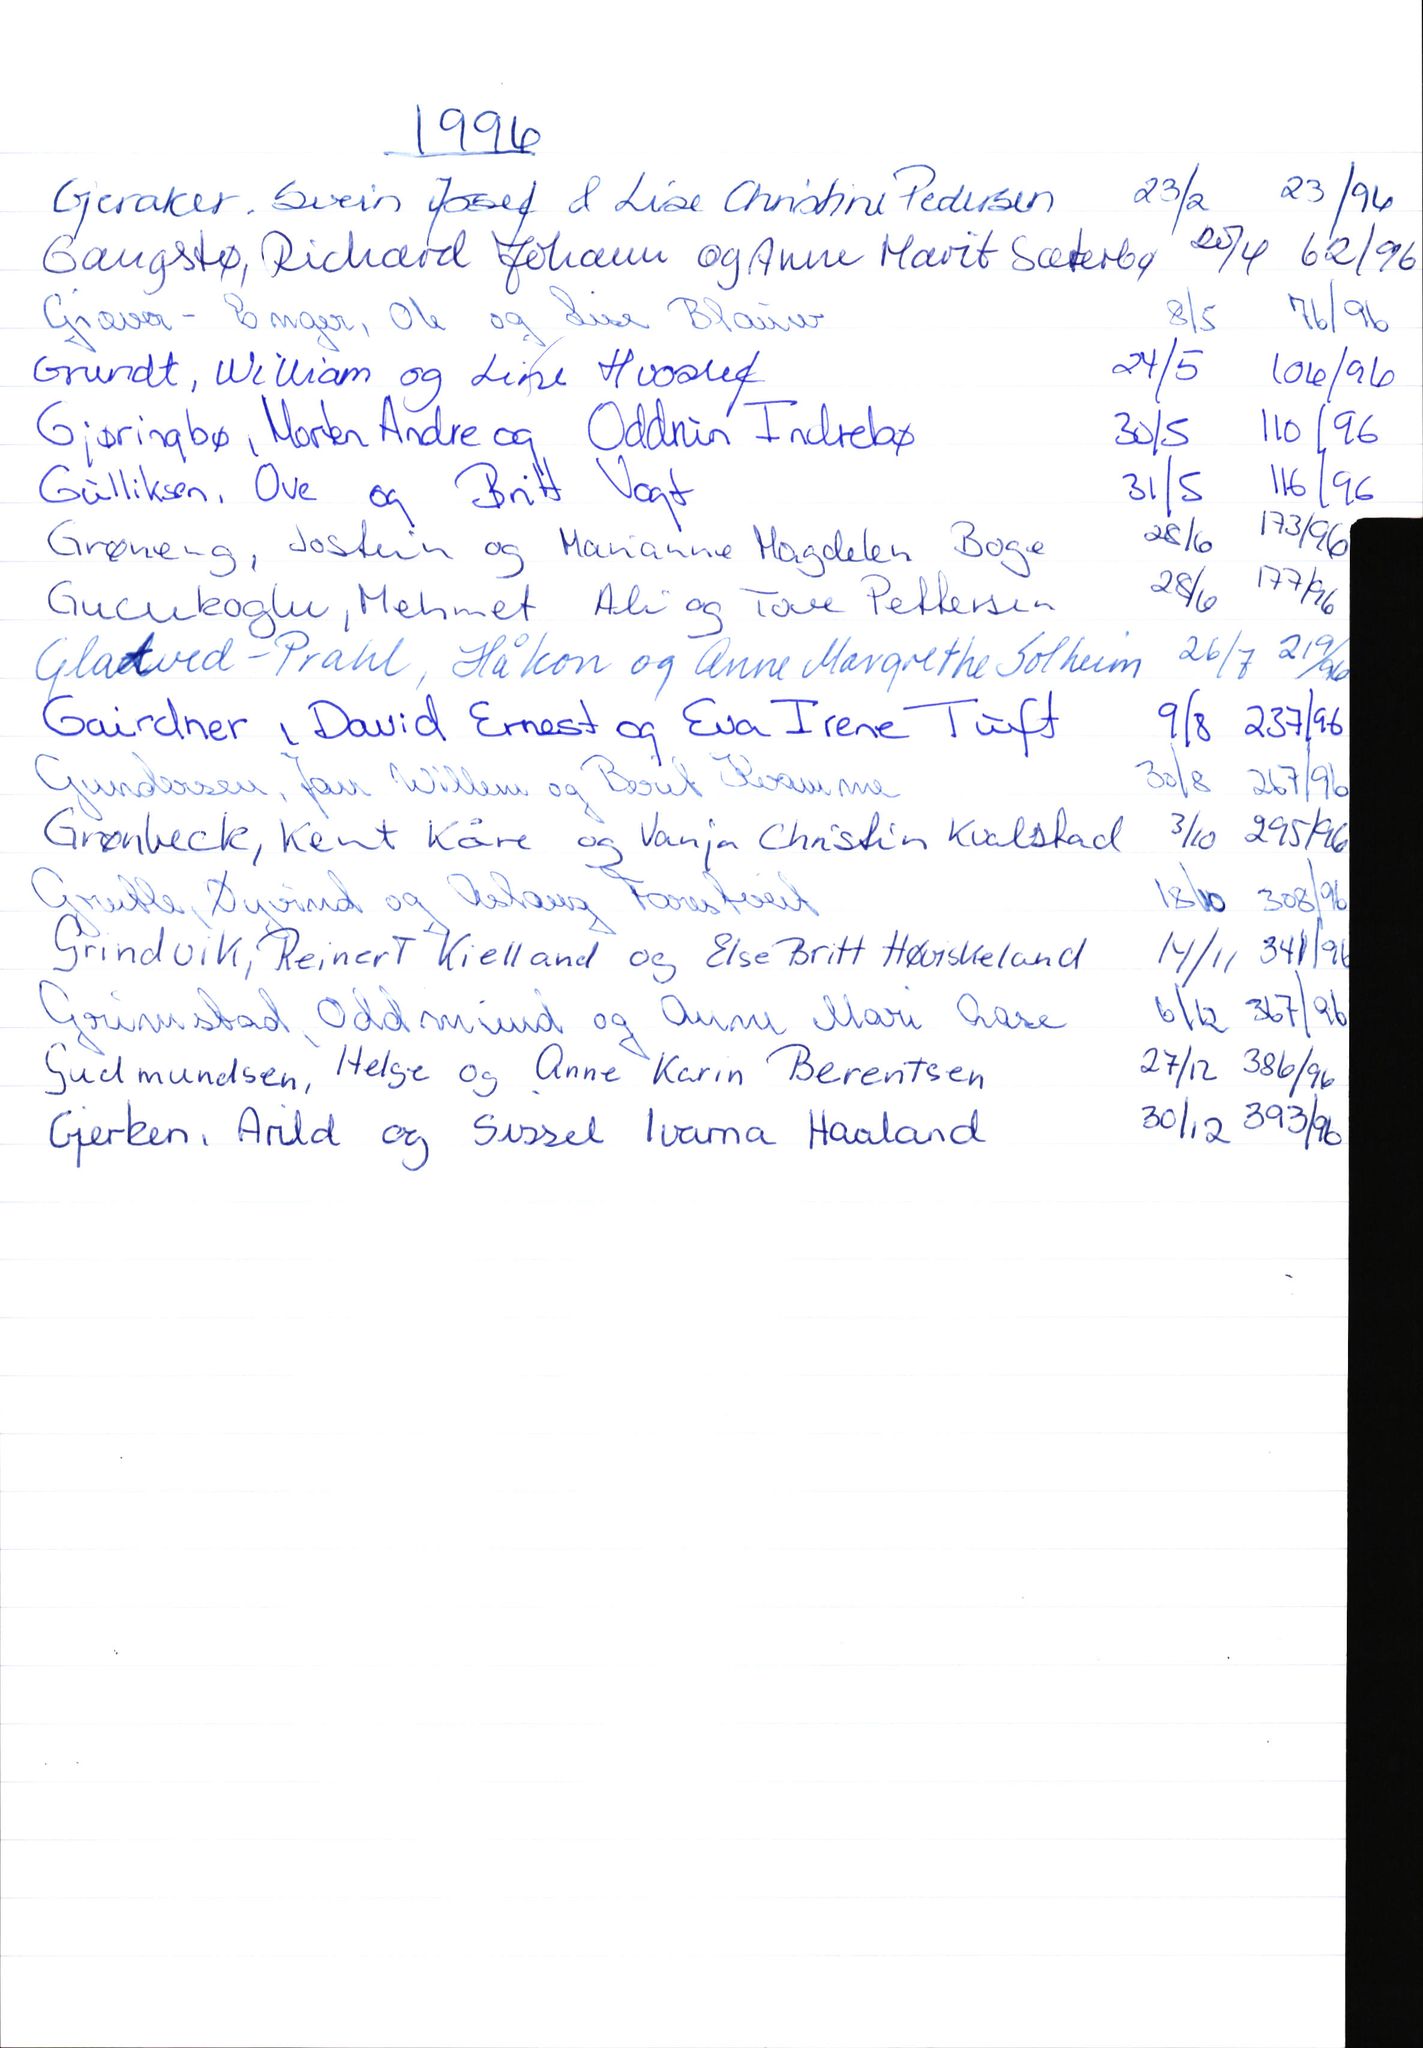 1996
Gjeraker. Svein Josef & Lise Christine Pedersen 23/2 23/96
Gangstø, Richard Johann og Anne Marit Sæterbø 25/4 62/96
Graver-Enger, Ole og Lise Blauw 8/5 76/96
Grundt, William og Line Hvoslef 24/5 106/96
Gjøringbø, Morten Andre og Oddrun Indrebø 30/5 110/96
Gulliksen. Ove og Britt Vogt 31/5 116/96
Grøneng, Jostein og Marianne Magdelen Boge 28/6 173/96
Gucukoglu, Mehmet Ali og Tove Pettersen 28/6 177/96
Glatved-Prahl, Håkon og Anne Margrethe Solheim 26/7 219/96
Gairdner, David Ernest og Eva Irene Tuft 9/8 237/96
Gundersen, Jan Willem og Berit Kvamme 30/8 267/96
Grønbeck, Kent Kåre og Vanja Christin Kvalstad 3/10 295/96
Gruttle, Øyvind og Aslaug Tørstveit 18/10 308/96
Grindvik, Reinert Kielland og Else Britt Høviskeland 14/11 341/96
Grimstad, Oddmund og Anne Mari Aase 6/12 367/96
Gudmundsen, Helge og Anne Karin Berentsen 27/12 386/96
Gjerken. Arild og Sissel Ivarna Haaland 30/12 393/96